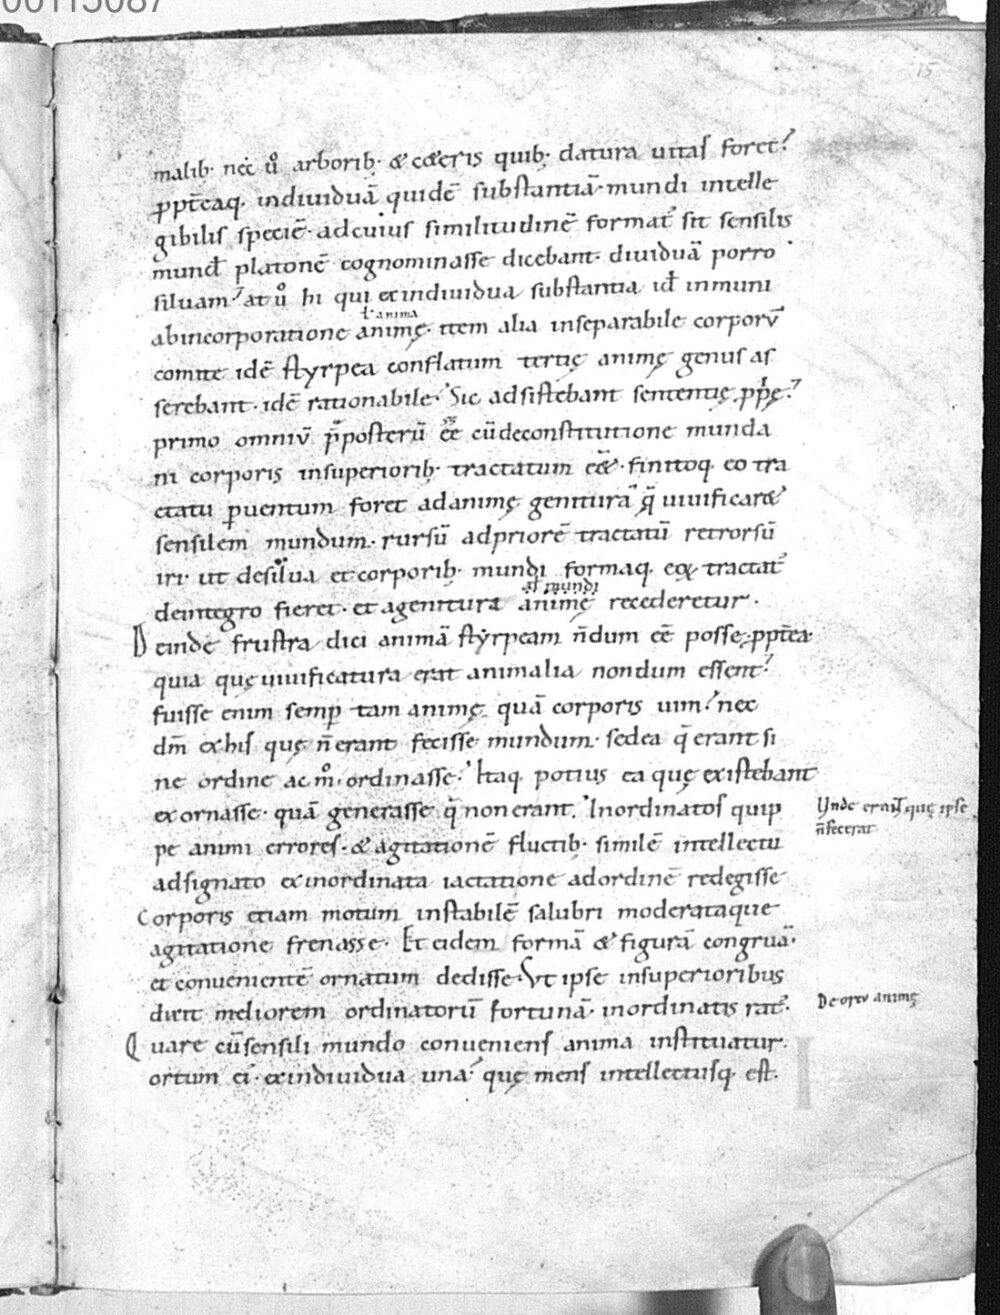 00115087
15
malib; nec ů arborib; & cęteris quib; datura uitas foret?
ꝓpt̄eaq; indiuiduā quidē substantiā· mundi intelle
gibilis speciē· adcuius similitudinē format᷒ sit sensilis
mund᷒ platonē cognominasse dicebant· diuiduā porro
siluam? at ů hi qui exindiuidua substantia id᷒ inmuni
abincorporatione animę· item alia inseparabile corporū
ł anima
comite idē styrpea conflatum tertię animę genus as
serebant· idē rationabile· Sic adsistebant sententię ꝓprię?
primo omniū p̄posterū ēē cū deconstitutione munda
ni corporis insuperiorib; tractatum ēē&· finitoq; eo tra
ctatu ꝑuentum foret adanimę genitura᷒ q̄ uiuificar&
sensilem mundum· rursū adpriorē tractatū retrorsū
iri· ut desilua et corporib; mundi formaq; eox tractat᷒
deintegro fieret· et agenitura animę recederetur·
ał mundi
Deinde frustra dici animā styrpeam n̄dum ēē posse· ꝓpt̄ea
quia quę uiuificatura erat animalia nondum essent?
fuisse enim semꝑ tam animę quā corporis uim? nec
dm̄ exhis quę n̄ erant fecisse mundum· sedea q̄ erant si
ne ordine ac m̊· ordinasse· Itaq; potius ea quę existebant
exornasse· quā generasse q̄ non erant· Inordinatos quip
Unde erant quę ipse
n̄ fecerat
pe animi errores· & agitationē fluctib; similē intellectu
adsignato exinordinata iactatione adordinē redegisse
Corporis etiam motum instabilē salubri moderataque
agitatione frenasse· Et eidem formā & figurā congruā·
et conuenientē ornatum dedisse· Ut ipse insuperioribus
dixit meliorem ordinatorū fortunā· inordinatis rat᷒·
De ortu animę
Quare cū sensili mundo conueniens anima instituatur·
ortum ei· exindiuidua una? quę mens intellectusq; est·